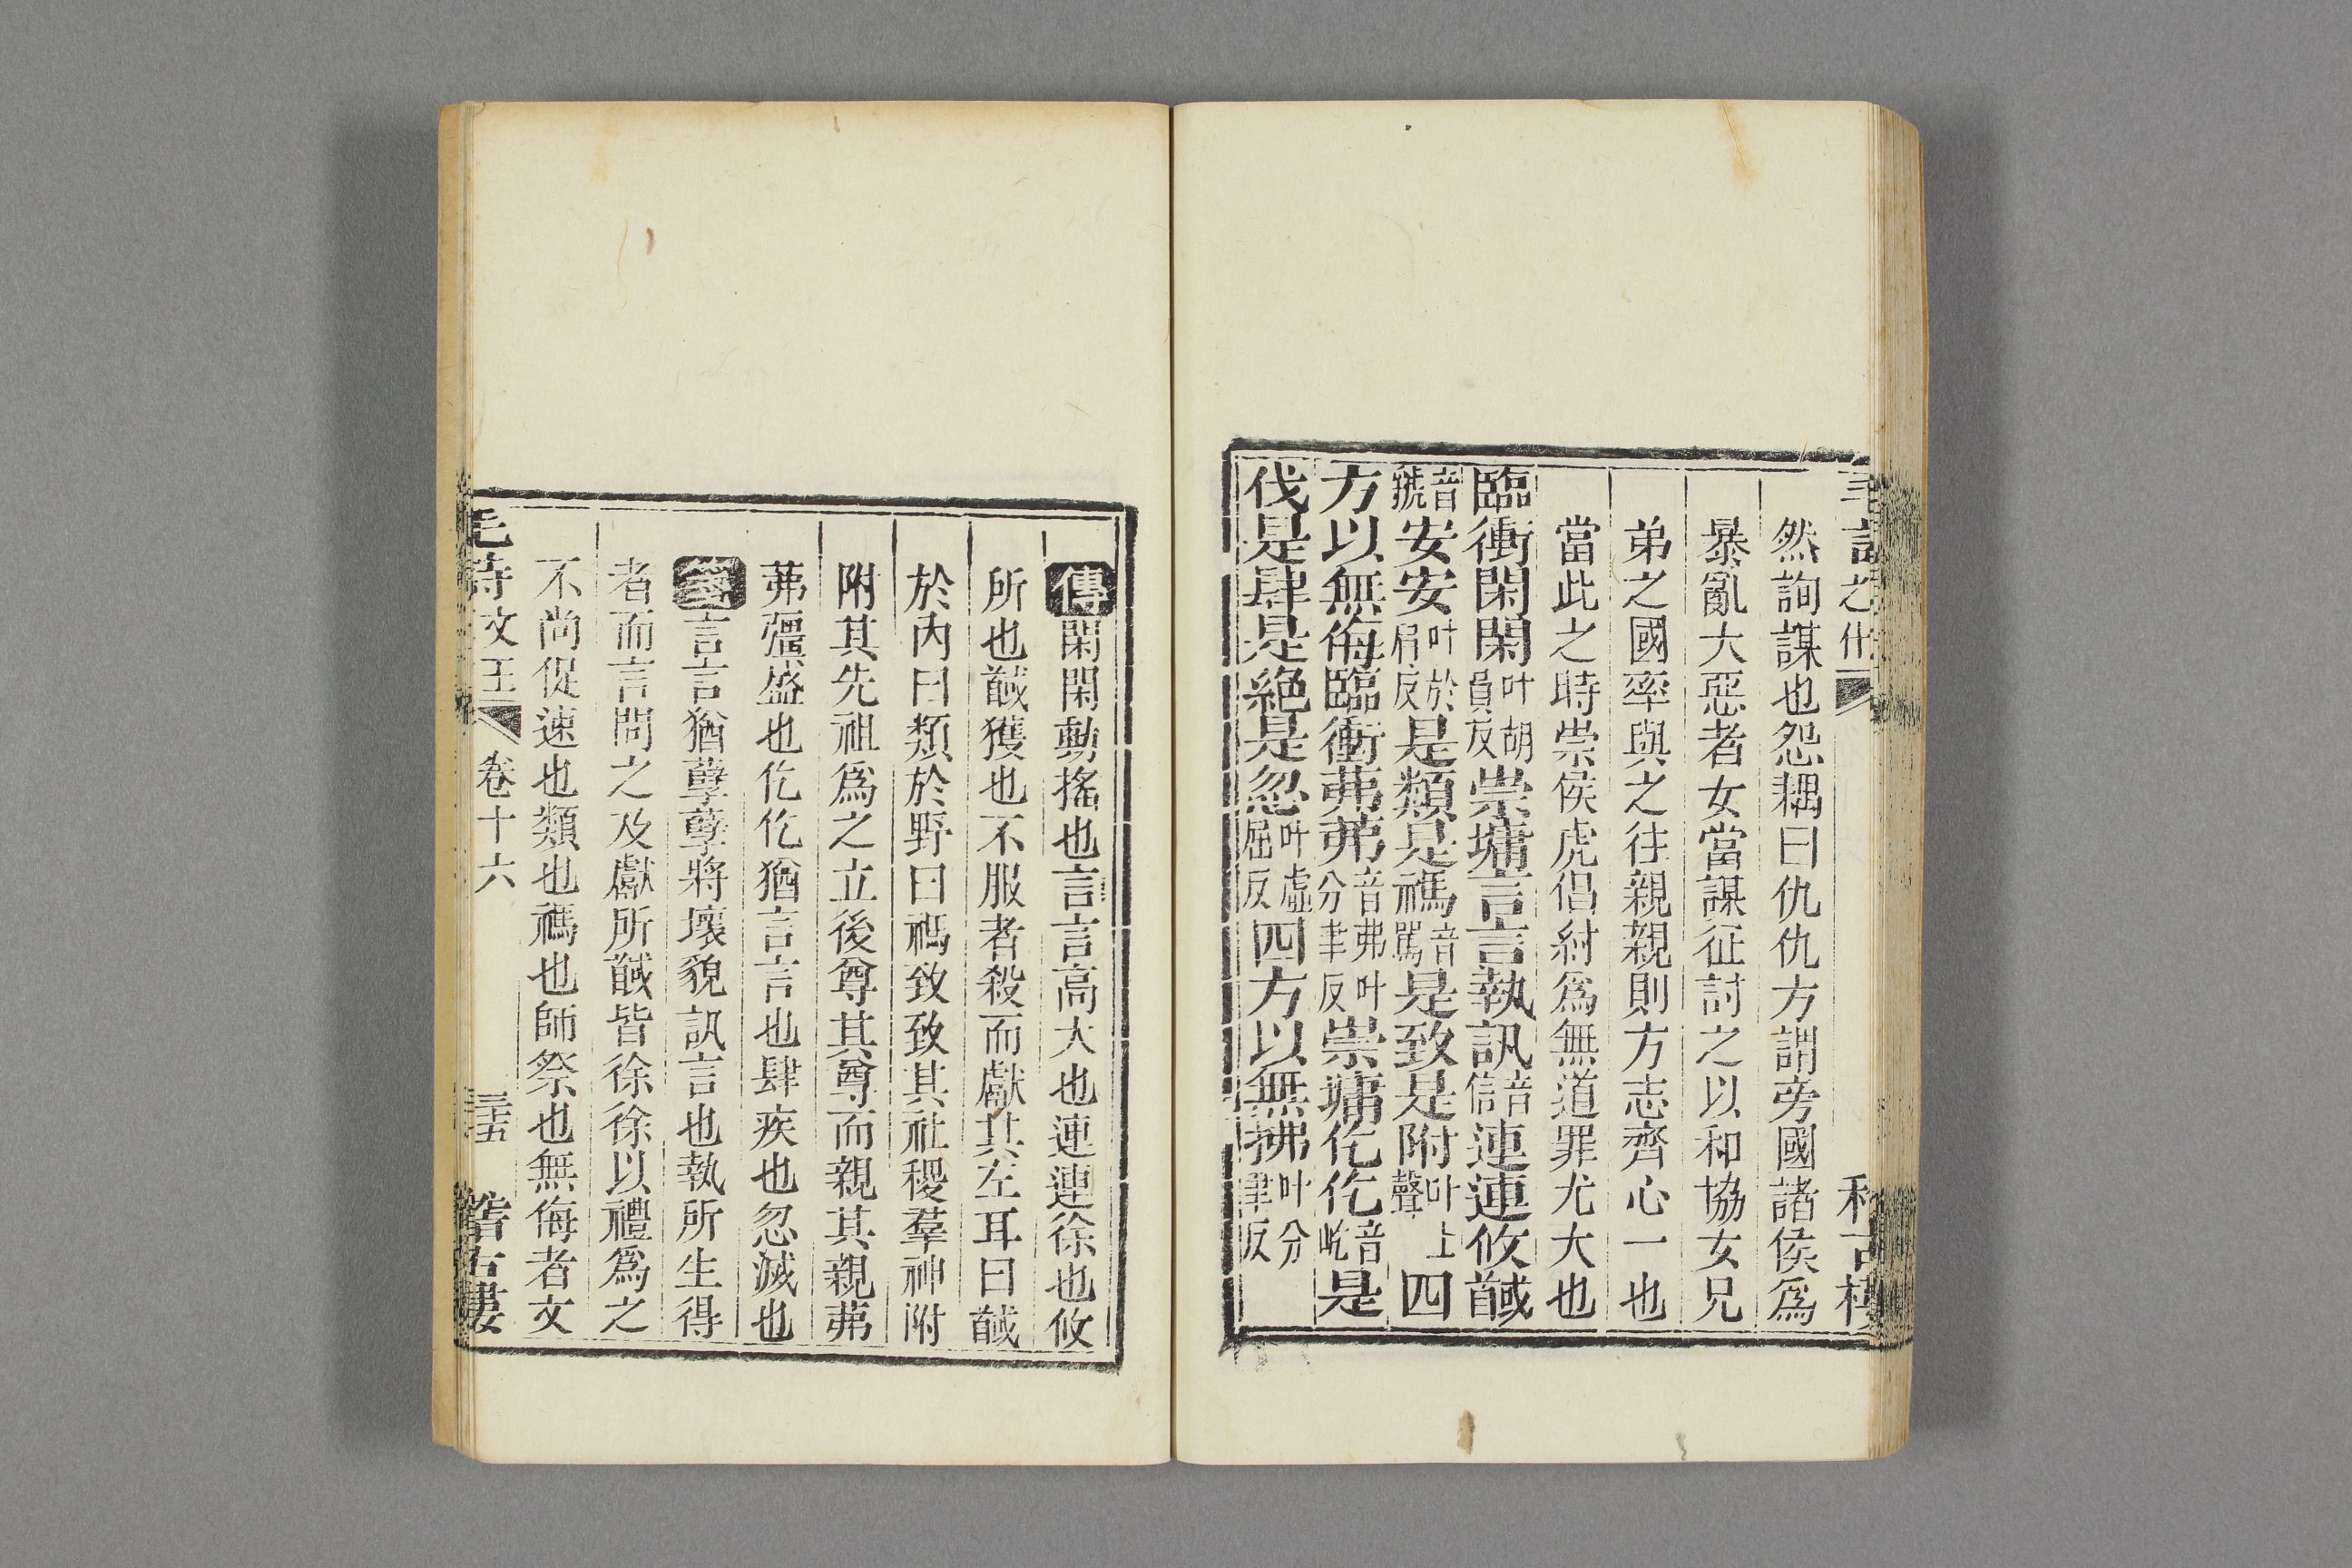 然詢謀也怨耦曰仇仇方謂旁國諸侯爲
暴亂大惡者女當謀征討之以和協女兄
弟之國率與之往親親則方志齊心一也
當此之時崇侯虎倡紂爲無道罪尤大也
臨衝閑閑叶胡員反崇墉言言執訊音信連連攸馘
音虢安安叶於肩反是類是禡音駡是致是附叶上聲四
方以無侮臨衝茀茀音弗叶分聿反崇墉仡仡音屹是
伐是肆是絕是忽叶虛屈反四方以無拂叶分聿反
傳閑閑動搖也言言高大也連連徐也攸
所也馘獲也不服者殺而獻其左耳曰馘
於內曰類於野曰禡致致其社稷羣神附
附其先祖爲之立後尊其尊而親其親茀
茀彊盛也仡仡猶言言也肆疾也忽滅也
箋言言猶孽孽將壞貌訊言也執所生得
者而言問之及獻所馘皆徐徐以禮爲之
不尚促速也類也禡也師祭也無侮者文
毛詩文王 卷十六 三十五 皆古婁